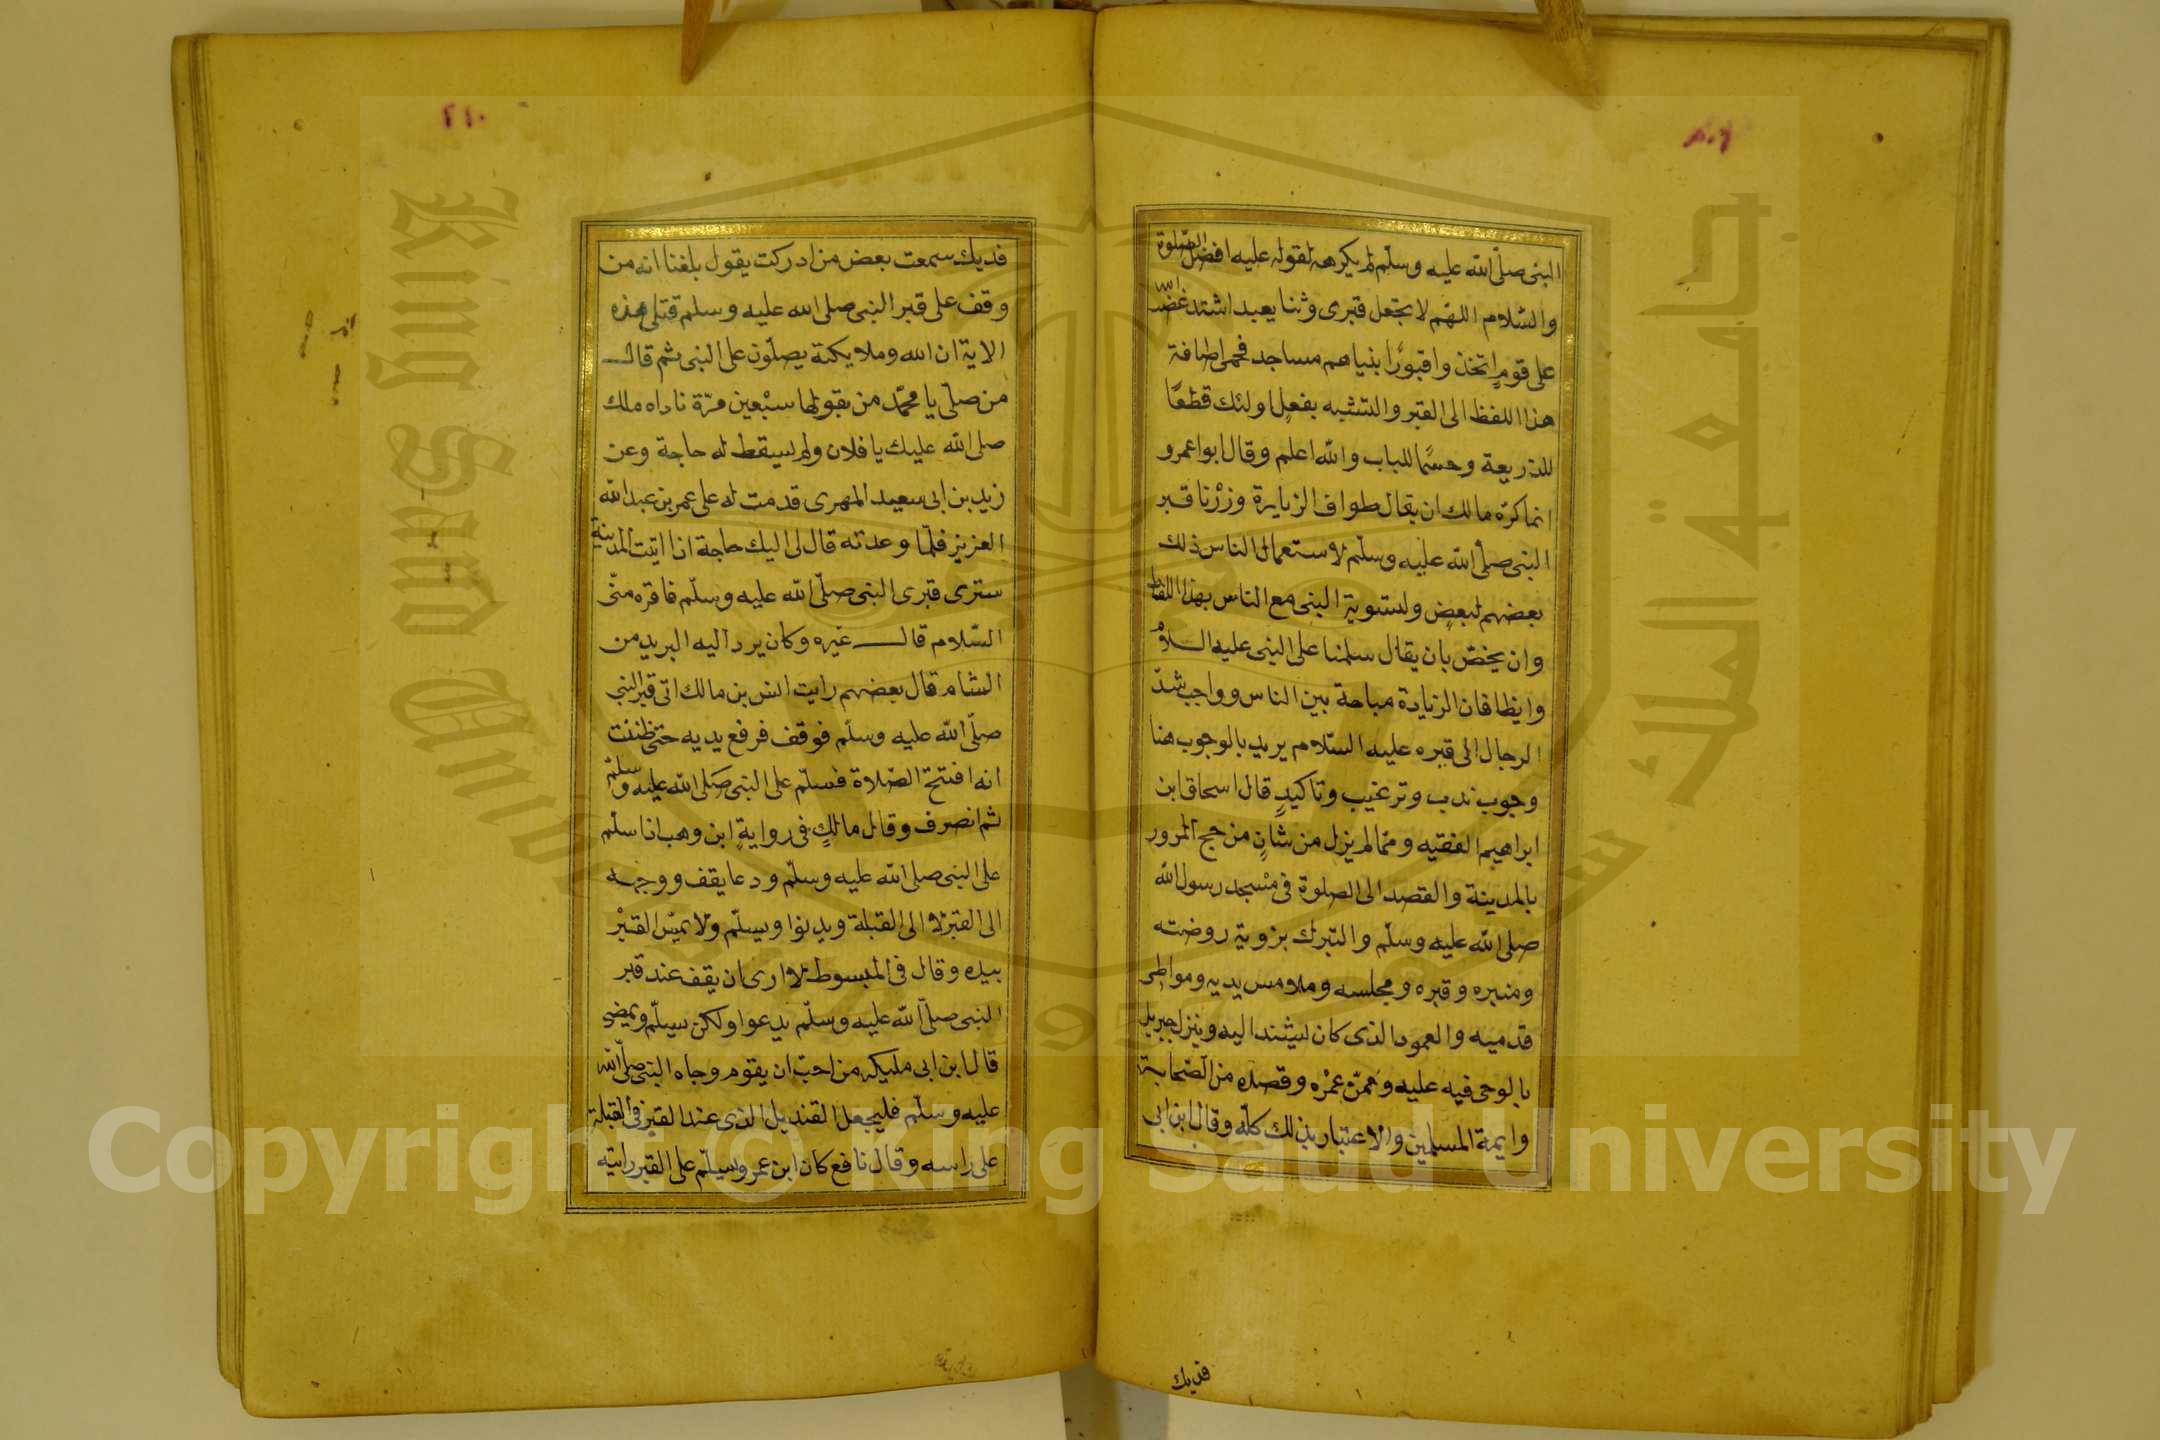 النبى صلى الله عليه وسلم لم يكرهه لقوله عليه افضل الصلوة
والسلام اللهم لا تجعل قبرى وثنا يعبد اشتد غضب الله
على قوم اتخذوا قبور انبياهم مساجد فحمى اضافة
هذا اللفظ الى القبر والتشبه بفعل اولئك قطعا
للذريعة وحسما للباب والله اعلم وقال ابوا عمرو
انما كره مالك ان يقال طواف الزيارة وزرنا قبر
النبى صلى الله عليه وسلم لاستعمال الناس ذلك
بعضهم لبعض ولتسوية النبى مع الناس بهذا اللفظ
وان يخص بان يقال سلمنا على النبى عليه السلام
وايظا فان الزيادة مباحة بين الناس وواجب شد
الرحال الى قبره عليه السلام يريد بالوجوب هنا
وجوب ندب وترغيب وتاكيد قال اسحاق ابن
ابراهيم الفقيه ومما لم يزل من شان من حج المرور
بالمدينة والقصد الى الصلوة فى مسجد رسول الله
صلى الله عليه وسلم والتبرك بزوية روضته
ومنبره وقبره ومجلسه وملامس يديه ومواطى
قدميه والعمود الذى كان ليشند اليه وينزل جبريل
بالوحى فيه عليه وممن عمره وقصده من الصحابة
وايمة المسلمين والاعتبار بذلك كله وقال ابن ابى
فديك
فديك سمعت بعض من ادركت يقول بلغنا انه من
وقف على قبر النبى صلى الله عليه وسلم فتلى هذه
الاية ان الله وملايكتة يصلون على النبى ثم قال
من صلى يا محمد من يقولها سبعين مرة ناداه ملك
صلى الله عليك يا فلان ولم سيقط له حاجة وعن
زيد بن ابى سعيد المهرى قدمت له على عمر بن عبد الله
العزيز فلما وعدته قال لى اليك حاجة اذا اتيت المدينة
سترى قبرى النبى صلى الله عليه وسلم فاقره منى
السلام قال غيره وكان يرد اليه البريد من
الشام قال بعضهم رايت انس بن مالك اتى قبر النبى
صلى الله عليه وسلم فوقف فرفع يديه حتى ظننت
انه افتتح الصلاة فسلم على النبى صلى الله عليه وسلم
ثم انصرف وقال مالك فى رواية ابن وهب انا سلم
على النبى صلى الله عليه وسلم ودعا يقف ووجهه
الى القبر لا الى القبلة ويدنوا ويسلم ولا يمس القبر
بيده وقال فى المبسوط لا ارى ان يقف عند قبر
النبى صلى الله عليه وسلم يدعوا ولكن سيلم ويمضى
قال ابن ابى مليكه من احب ان يقوم وجاه النبى صلى الله
عليه وسلم فليجعل القنديل الذى عند القبر فى القبلة
على راسه وقال نافع كان ابن عمر وسيلم على القبر رايته
٢١٠
Copyright © King Saud University
King Saud University
جامعة الملك سعود
1957